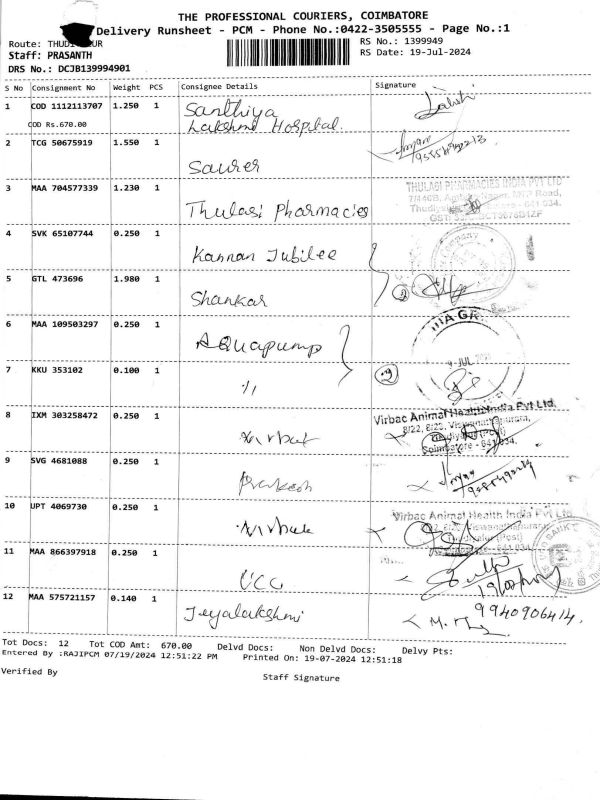 THE PROFESSIONAL COURIERS, COIMBATORE
Delivery Runsheet - PCM - Phone No.:0422-3505555 - Page No.:1
Route:
RS No.: 1399949
Staff: PRASANTH
RS Date: 19-Jul-2024
DRS No.: DCJB139994901
S No Consignment No Weight PCS Consignee Details Signature
1 COD 1112113707 1.250 1 Santhiya
COD Rs.670.00 Lakshmi Hospital.
2 TCG 50675919 1.550 1
Saurer
3 MAA 704577339 1.230 1
THULASI PHARMACIES INDIA PVT LTD
Thulasi Pharmacies
4 SVK 65107744 0.250 1
Kannan Jubilee
5 GTL 473696 1.980 1
Shankar
6 MAA 109503297 0.250 1
Aquapump
7 KKU 353102 0.100 1
Virbac Animal Health India Pvt Ltd.
8 IXM 303258472 0.250 1
Coimbatore - 641 034.
Virbac
9 SVG 4681088 0.250 1
Prakash
10 UPT 4069730 0.250 1
Virbac Animal Health India Pvt Ltd.
Virbac
11 MAA 866397918 0.250 1
UCC
12 MAA 575721157 0.140 1
9940906414.
Jeyalakshmi
Tot Docs: 12 Tot COD Amt: 670.00 Delvd Docs: Non Delvd Docs: Delvy Pts:
Entered By :RAJIPCM 07/19/2024 12:51:22 PM Printed On: 19-07-2024 12:51:18
Verified By
Staff Signature